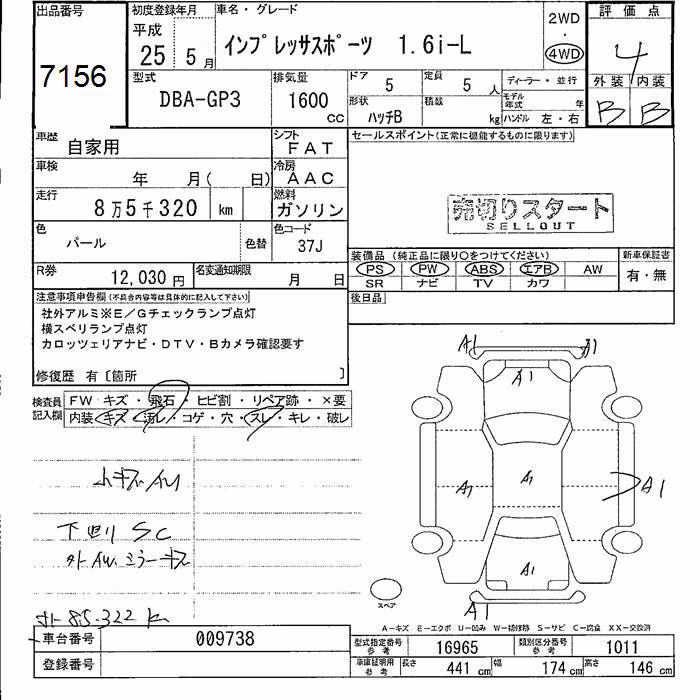 出品番号
7156
初度登録年月
平成
25 5 月
車名・グレード
インプレッサスポーツ 1.6i-L
2WD
・
4WD
評価点
4
外装 内装
B B
型式
DBA-GP3
排気量
1600 CC
ドア 5
定員 5 人
形状 ハッチB
積載 kg
ディーラー・並行
モデル年式 年
ハンドル 左・右
車歴
自家用
シフト
FAT
車検
年 月( 日)
冷房
AAC
走行
8万5千320 km
燃料
ガソリン
色
パール
色替
色コード
37J
R券
12,030 円
名変通知期限
月 日
セールスポイント(正常に機能するものに限ります)
売切りスタート
SELLOUT
装備品 (純正品に限り○をつけてください)
新車保証書
PS PW ABS エアB AW
有・無
SR ナビ TV カワ
後日品
注意事項申告欄(不具合内容等は具体的に記入して下さい)
社外アルミ※E/Gチェックランプ点灯
横スベリランプ点灯
カロッツェリアナビ・DTV・Bカメラ確認要す
修復歴 有〔箇所 〕
検査員記入欄
FW キズ・飛石・ヒビ割・リペア跡・×要
内装・キズ・汚レ・コゲ・穴・スレ・キレ・破レ
小キズAU
下廻りSC
外AW.ミラーキズ
85.322 k
A1 A1
A1
A1 A1 A1
A1
A1
スペア
A-キズ E-エクボ U-凹み W-補修跡 S-サビ C-腐食 XX-交換済
車台番号
009738
登録番号
型式指定番号 参考
16965
類別区分番号 参考
1011
車庫証明用 参考
長さ 441 cm
幅 174 cm
高さ 146 cm